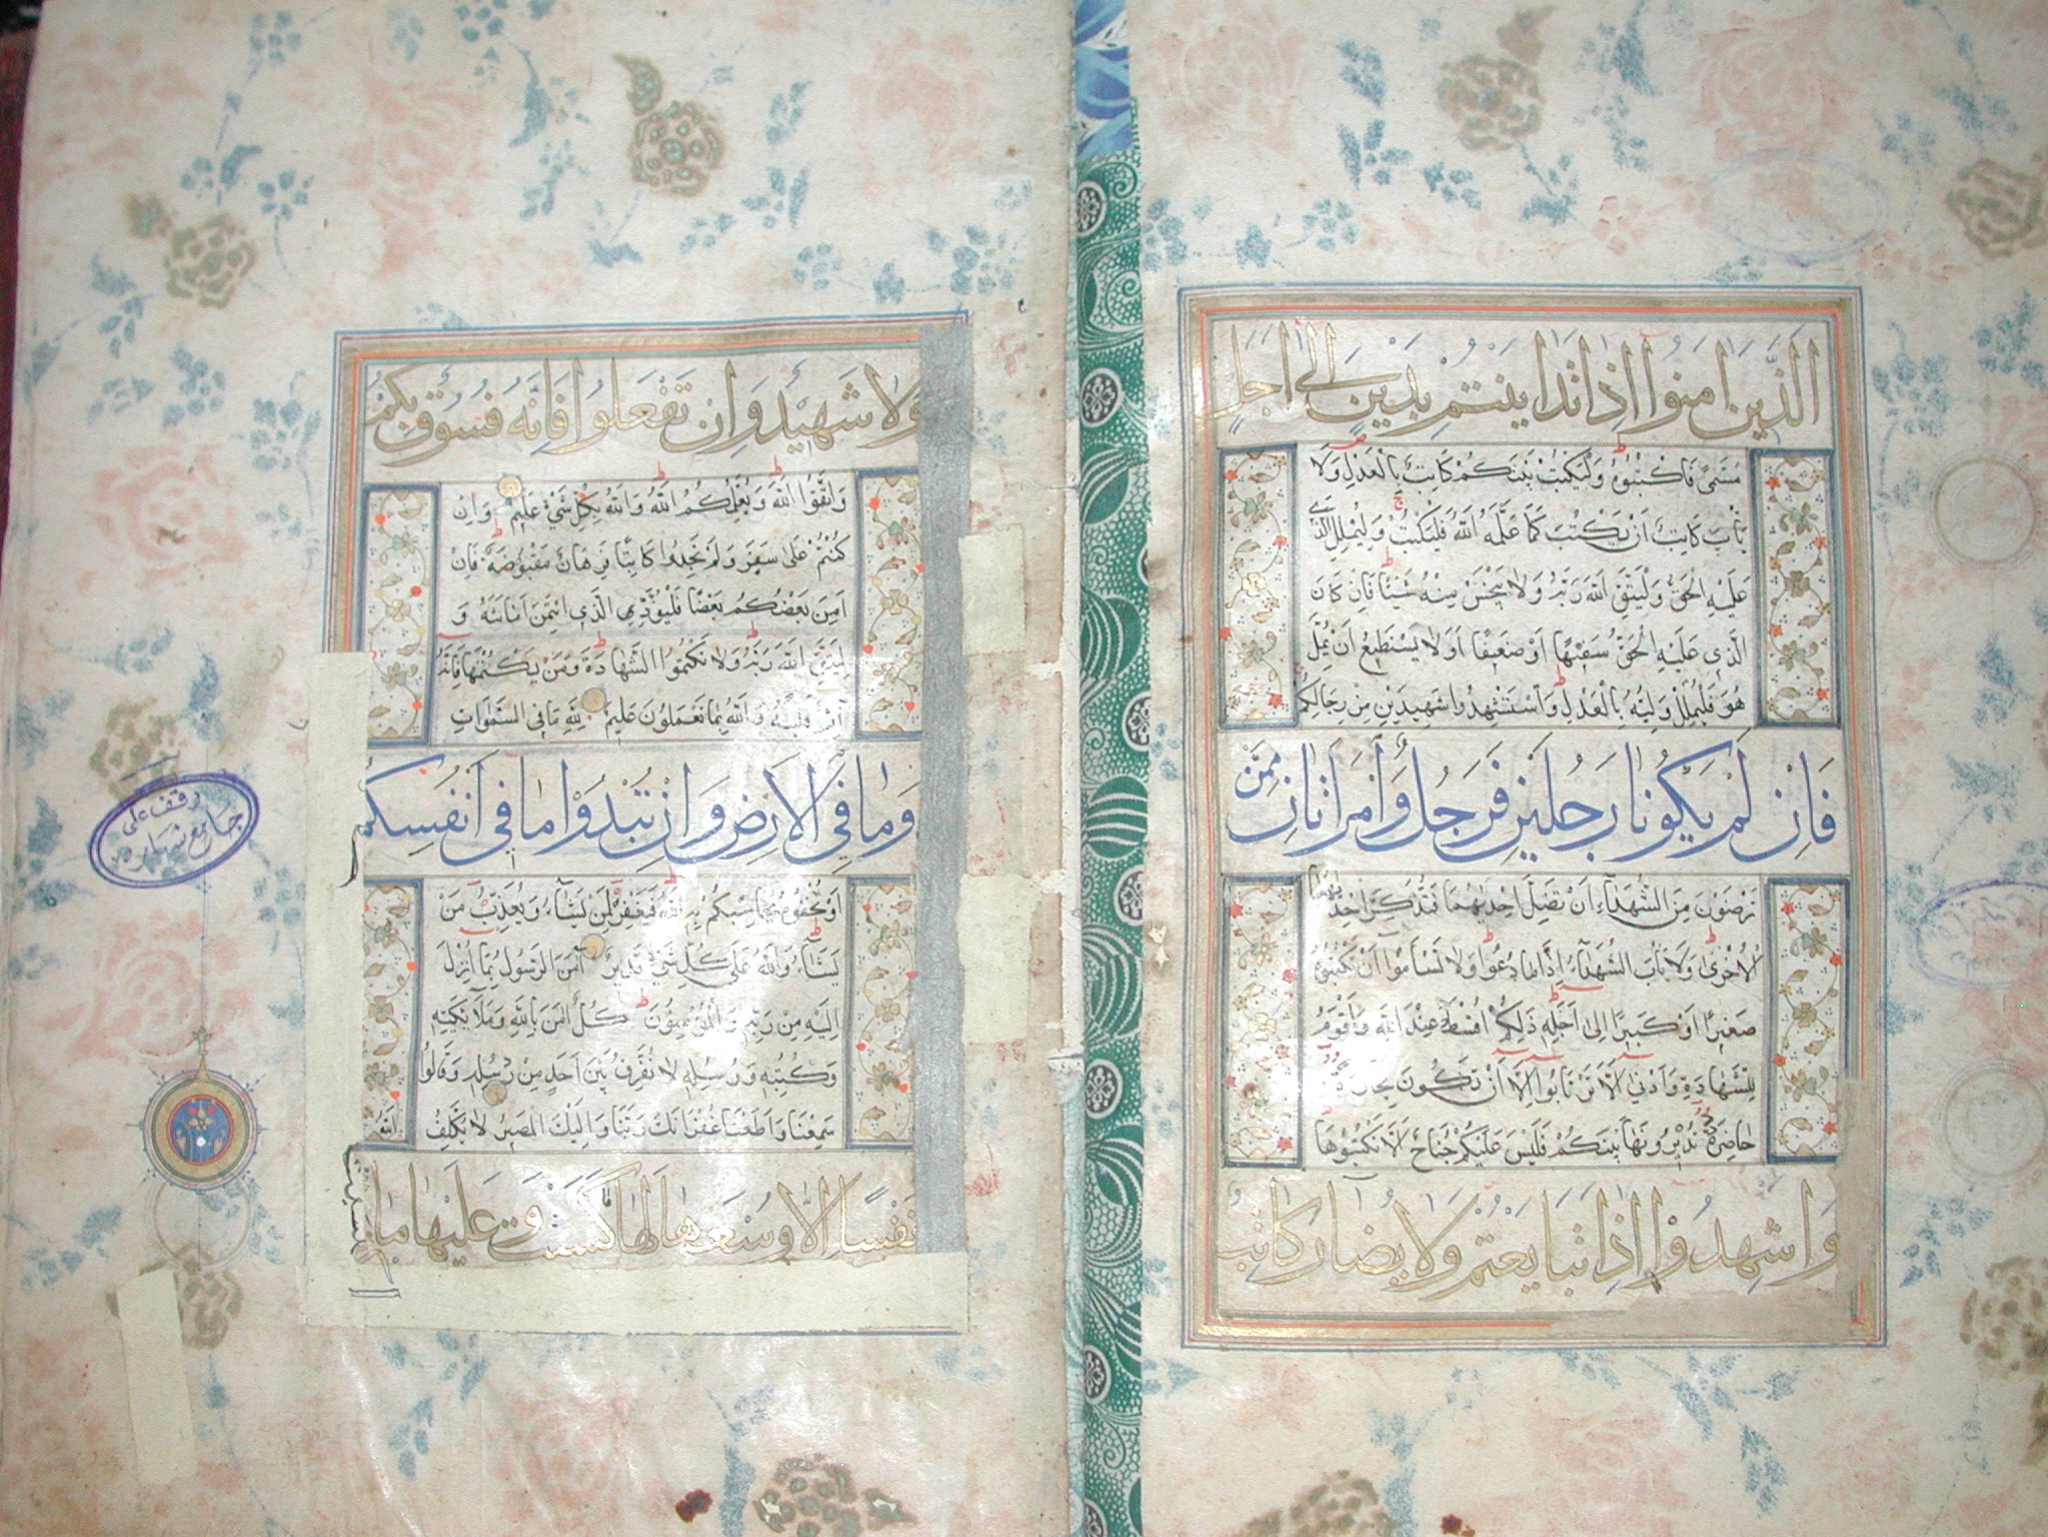 الَّذِينَ اٰمَنُوا اِذَا تَدَايَنْتُمْ بِدَيْنٍ اِلٰى اَجَلٍ
مُسَمًّى فَاكْتُبُوهُ وَلْيَكْتُبْ بَيْنَكُمْ كَاتِبٌ بِالْعَدْلِ وَلَا
يَأْبَ كَاتِبٌ اَنْ يَكْتُبَ كَمَا عَلَّمَهُ اللّٰهُ فَلْيَكْتُبْ وَلْيُمْلِلِ الَّذِي
عَلَيْهِ الْحَقُّ وَلْيَتَّقِ اللّٰهَ رَبَّهُ وَلَا يَبْخَسْ مِنْهُ شَيْئًا فَاِنْ كَانَ
الَّذِي عَلَيْهِ الْحَقُّ سَفِيهًا اَوْ ضَعِيفًا اَوْ لَا يَسْتَطِيعُ اَنْ يُمِلَّ
هُوَ فَلْيُمْلِلْ وَلِيُّهُ بِالْعَدْلِ وَاسْتَشْهِدُوا شَهِيدَيْنِ مِنْ رِجَالِكُمْ
فَاِنْ لَمْ يَكُونَا رَجُلَيْنِ فَرَجُلٌ وَامْرَاَتَانِ مِمَّنْ
تَرْضَوْنَ مِنَ الشُّهَدَاءِ اَنْ تَضِلَّ اِحْدٰيهُمَا فَتُذَكِّرَ اِحْدٰيهُمَا
الْاُخْرٰى وَلَا يَأْبَ الشُّهَدَاءُ اِذَا مَا دُعُوا وَلَا تَسْأَمُوا اَنْ تَكْتُبُوهُ
صَغِيرًا اَوْ كَبِيرًا اِلٰى اَجَلِهِ ذٰلِكُمْ اَقْسَطُ عِنْدَ اللّٰهِ وَاَقْوَمُ
لِلشَّهَادَةِ وَاَدْنٰى اَلَّا تَرْتَابُوا اِلَّا اَنْ تَكُونَ تِجَارَةً
حَاضِرَةً تُدِيرُونَهَا بَيْنَكُمْ فَلَيْسَ عَلَيْكُمْ جُنَاحٌ اَلَّا تَكْتُبُوهَا
وَاَشْهِدُوا اِذَا تَبَايَعْتُمْ وَلَا يُضَارَّ كَاتِبٌ
وَلَا شَهِيدٌ وَاِنْ تَفْعَلُوا فَاِنَّهُ فُسُوقٌ بِكُمْ
وَاتَّقُوا اللّٰهَ وَيُعَلِّمُكُمُ اللّٰهُ وَاللّٰهُ بِكُلِّ شَيْءٍ عَلِيمٌ وَاِنْ
كُنْتُمْ عَلٰى سَفَرٍ وَلَمْ تَجِدُوا كَاتِبًا فَرِهَانٌ مَقْبُوضَةٌ فَاِنْ
اَمِنَ بَعْضُكُمْ بَعْضًا فَلْيُؤَدِّ الَّذِي اؤْتُمِنَ اَمَانَتَهُ وَ
لْيَتَّقِ اللّٰهَ رَبَّهُ وَلَا تَكْتُمُوا الشَّهَادَةَ وَمَنْ يَكْتُمْهَا فَاِنَّهُ
اٰثِمٌ قَلْبُهُ وَاللّٰهُ بِمَا تَعْمَلُونَ عَلِيمٌ لِلّٰهِ مَا فِي السَّمٰوَاتِ
وَمَا فِي الْاَرْضِ وَاِنْ تُبْدُوا مَا فِي اَنْفُسِكُمْ
اَوْ تُخْفُوهُ يُحَاسِبْكُمْ بِهِ اللّٰهُ فَيَغْفِرُ لِمَنْ يَشَاءُ وَيُعَذِّبُ مَنْ
يَشَاءُ وَاللّٰهُ عَلٰى كُلِّ شَيْءٍ قَدِيرٌ اٰمَنَ الرَّسُولُ بِمَا اُنْزِلَ
اِلَيْهِ مِنْ رَبِّهِ وَالْمُؤْمِنُونَ كُلٌّ اٰمَنَ بِاللّٰهِ وَمَلٰئِكَتِهِ
وَكُتُبِهِ وَرُسُلِهِ لَا نُفَرِّقُ بَيْنَ اَحَدٍ مِنْ رُسُلِهِ وَقَالُوا
سَمِعْنَا وَاَطَعْنَا غُفْرَانَكَ رَبَّنَا وَاِلَيْكَ الْمَصِيرُ لَا يُكَلِّفُ اللّٰهُ
نَفْسًا اِلَّا وُسْعَهَا لَهَا مَا كَسَبَتْ وَعَلَيْهَا مَا
وقف على
جامع شهارة